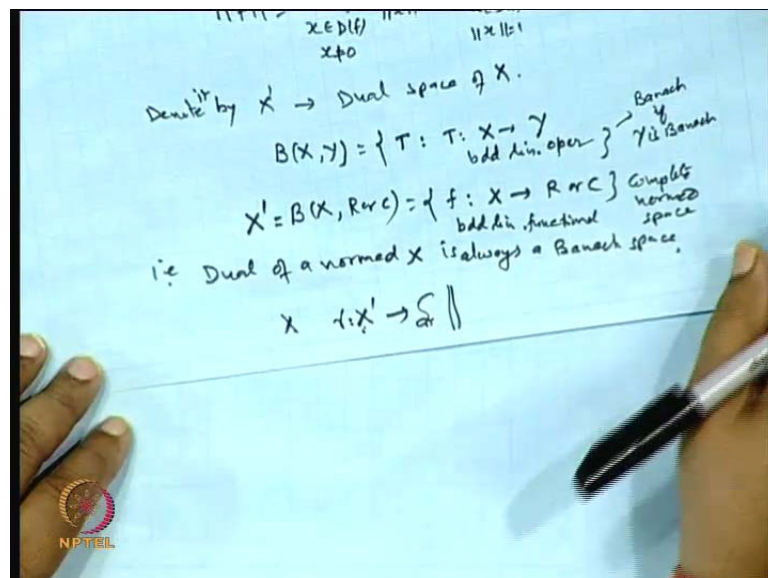 x∈D(f)
x≠0
||x||=1
Denote it by X' → Dual space of X.
B(X,Y) = { T : T: X → Y } → Banach
bdd lin. oper
if
Y is Banach
X' = B(X, R or C) = { f : X → R or C } Complete
bdd lin. functional
normed
space
i.e. Dual of a normed X is always a Banach space.
X
NPTEL